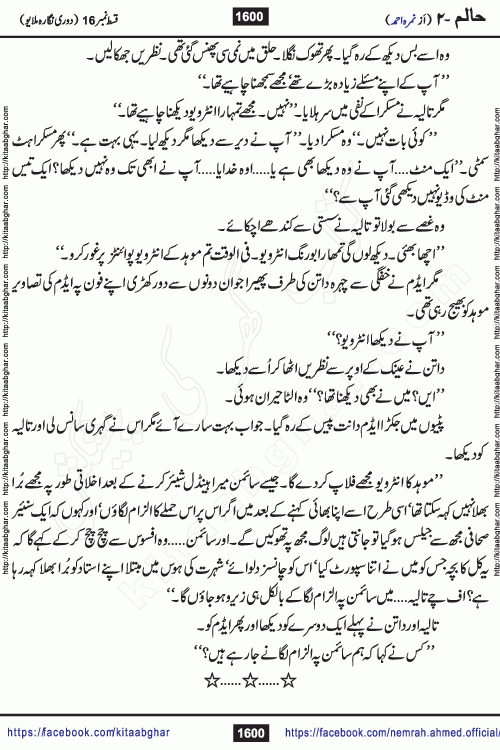 حالم -۲ (از نمرہ احمد)
1600
قسط نمبر 16 (دوری نگارہ ملایو)
وہ اسے بس دیکھ کے رہ گیا۔ پھر تھوک نگلا۔ حلق میں نمی سی پھنس گئی تھی۔ نظریں جھکا لیں۔
’’آپ کے اپنے مسئلے زیادہ بڑے تھے‘ مجھے سمجھنا چاہیے تھا۔‘‘
مگر تالیہ نے مسکرا کے نفی میں سر ہلایا۔ ’’نہیں۔ مجھے تمہارا انٹرویو دیکھنا چاہیے تھا۔‘‘
’’کوئی بات نہیں۔‘‘ وہ مسکرا دیا۔ ’’آپ نے دیر سے دیکھا مگر دیکھ لیا۔ یہی بہت ہے۔‘‘ پھر مسکراہٹ
سمٹی۔ ’’ایک منٹ.... آپ نے وہ دیکھا بھی ہے یا.....اوہ خدایا.....آپ نے ابھی تک وہ نہیں دیکھا؟ ایک تیس
منٹ کی وڈیو نہیں دیکھی گئی آپ سے؟‘‘
وہ غصے سے بولا تو تالیہ نے سستی سے کندھے اچکائے۔
’’اچھا بھئی۔ دیکھ لوں گی تمہارا بورنگ انٹرویو۔ فی الوقت تم موہد کے انٹرویو پوائنٹز پر غور کرو۔‘‘
مگر ایڈم نے خفگی سے چہرہ داتن کی طرف پھیرا جوان دونوں سے دور کھڑی اپنے فون پہ ایڈم کی تصاویر
موہد کو بھیج رہی تھی۔
’’آپ نے دیکھا انٹرویو؟‘‘
داتن نے عینک کے اوپر سے نظریں اٹھا کر اُسے دیکھا۔
’’ایں؟ میں نے بھی دیکھنا تھا؟‘‘ وہ الٹا حیران ہوئی۔
پٹیوں میں جکڑا ایڈم دانت پیس کے رہ گیا۔ جواب بہت سارے آئے مگر اس نے گہری سانس لی اور تالیہ
کو دیکھا۔
’’موہد کا انٹرویو مجھے فلاپ کر دے گا۔ جیسے سائمن میرا ہینڈل شیئر کرنے کے بعد اخلاقی طور پہ مجھے بُرا
بھلا نہیں کہہ سکتا تھا‘ اسی طرح اسے اپنا بھائی کہنے کے بعد میں اگر اس پر اس حملے کا الزام لگاؤں‘ اور کہوں کہ ایک سنئیر
صحافی مجھ سے جیلس ہو گیا تو جانتی ہیں لوگ مجھ پہ تھوکیں گے۔ اور سائمن.....وہ افسوس سے چچ چچ کر کے کہے گا کہ
یہ کل کا بچہ جس کو میں نے اتنا سپورٹ کیا‘ اس کو چانسز دلوائے‘ شہرت کی ہوس میں مبتلا اپنے استاد کو بُرا بھلا کہہ رہا
ہے؟ اف چے تالیہ.....میں سائمن پہ الزام لگا کے بالکل ہی زیرو ہو جاؤں گا۔‘‘
تالیہ اور داتن نے پہلے ایک دوسرے کو دیکھا اور پھر ایڈم کو۔
’’کس نے کہا کہ ہم سائمن پہ الزام لگانے جا رہے ہیں؟‘‘
☆......☆......☆
https://facebook.com/kitaabghar
1600
https://facebook.com/nemrah.ahmed.official/
http://kitaabghar.com